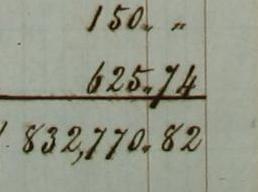 150. "
625.74
832,770.82